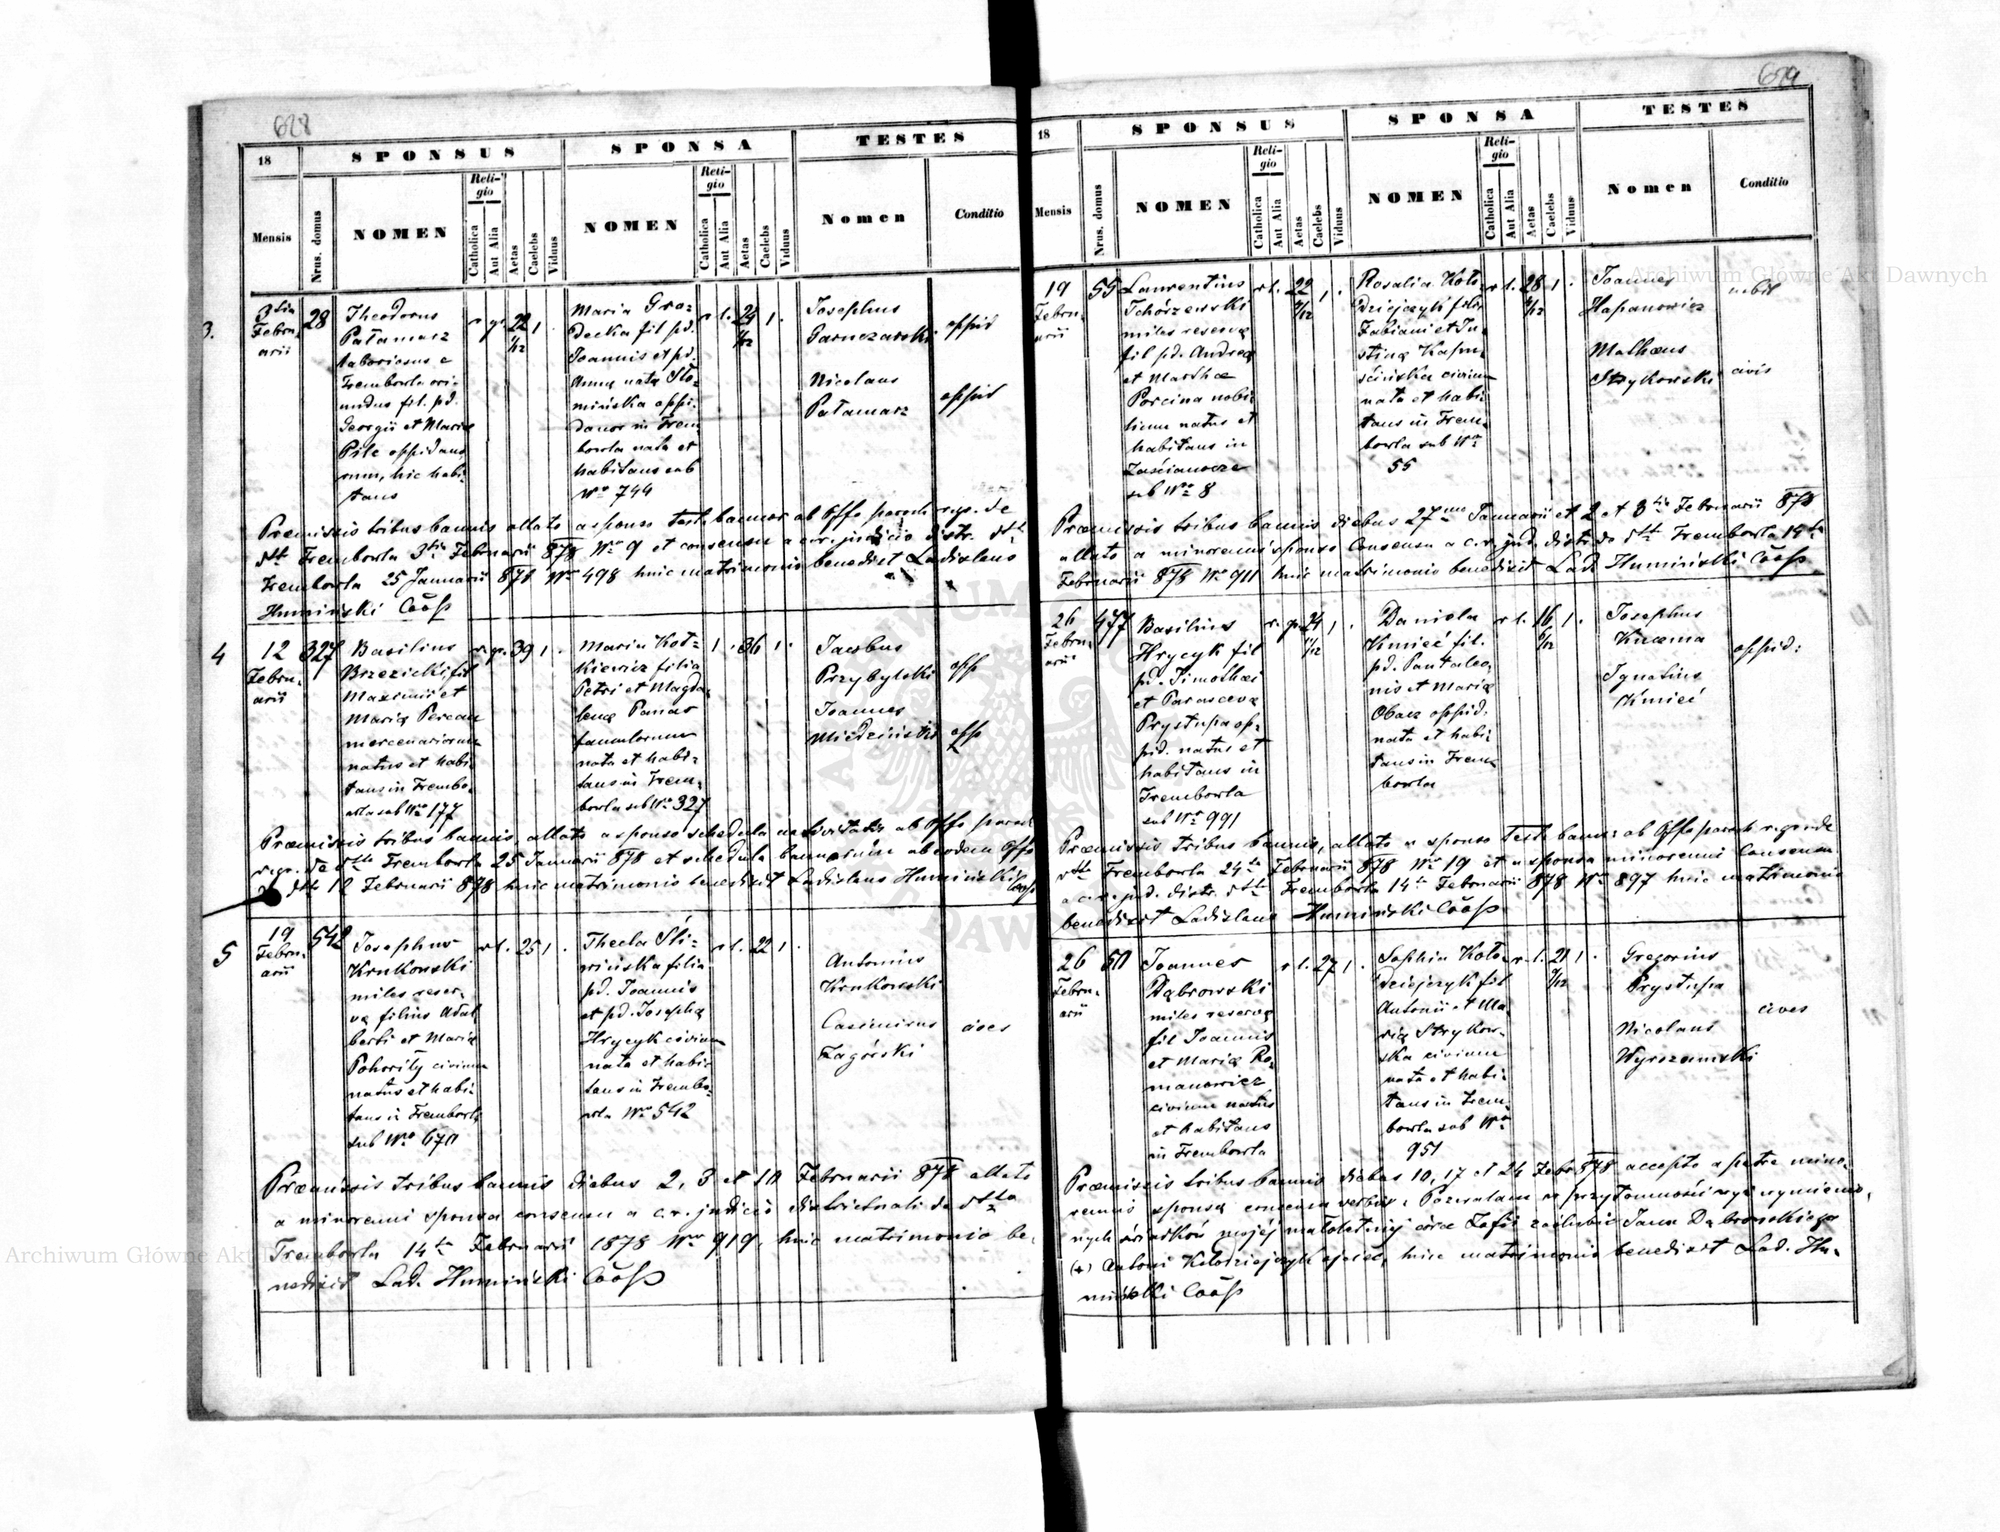 628
18
SPONSUS
SPONSA
TESTES
Mensis
Nrus. domus
NOMEN
Religio
Catholica
Aut Alia
Aetas
Caelebs
Viduus
NOMEN
Religio
Catholica
Aut Alia
Aetas
Caelebs
Viduus
Nomen
Conditio
3.
3tia
Febru-
arii
28
Theodorus
Patamarz
laboriosus e
Trembowla ori-
undus fil. pd.
Georgii et Mariæ
Pile oppidano
rum, hic habi-
tans
r. gr. 22 1.
1/12
Maria Gro-
decka fil pd.
Joannis et pd.
Annæ nata Sło-
mińska oppi-
danor in Trem
bowla nata et
habitans sub
Nro 744
r. l. 24 1.
Josephus
Garnczarski
oppid
Nicolaus
Patamarz
oppid
Præmissis tribus bannis allato a sponso Test. bannor ab Offo paroch r. gr. de
dtto Trembowla 3tia Februarii 878 Nro 9 et consensu a c. r. judicio distr. dtto
Trembowla 25 Januarii 878 Nro 498 huic matrimonio benedixit Ladislaus
Humiński Coop
4
12
Febru-
arii
327
Basilius
Brzezicki fil
Maximi et
Mariæ Percan
mercenariorum
natus et habi
tans in Trembo-
wla sub Nro 177
r. gr. 39 1.
Maria Kot-
kiewicz filia
Petri et Magda
lenæ Panas
famulorum
nata et habi-
tans in Trem-
bowla sub Nro 327
1 . 36 1.
Jacobus
Przybylski
opp
Joannes
Miedziński
opp
Præmissis tribus bannis, allato a sponso schedula nativitatis ab Offo paroch
r. gr. de dtto Trembowla 25 Januarii 878 et schedula bannorum ab eodem Offo
dtto 12 Februarii 878 huic matrimonio benedixit Ladislaus Humiński Coop
5
19
Febru-
arii
542
Josephus
Krukowski
miles reser-
væ filius Adal
berti et Mariæ
Pohorily civium
natus et habi-
tans in Trembowla
sub Nro 670
r. l. 25 1.
Thecla Śli-
wińska filia
pd. Joannis
et pd. Josephæ
Hrycyk civium
nata et habi-
tans in Trembo-
wla Nro 542
r. l. 22 1.
Antonius
Krukowski
Casimirus
Zagórski
cives
Præmissis tribus bannis diebus 2, 3 et 10 Februarii 878 allato
a minorenni sponsa consensu a c. r. judicio districtuali de dtto
Trembowla 14ta Februarii 1878 Nro 919, huic matrimonio be-
nedixit Lad. Humiński Coop
629
18
SPONSUS
SPONSA
TESTES
Mensis
Nrus. domus
NOMEN
Religio
Catholica
Aut Alia
Aetas
Caelebs
Viduus
NOMEN
Religio
Catholica
Aut Alia
Aetas
Caelebs
Viduus
Nomen
Conditio
19
Febru-
arii
55
Laurentius
Tchórzewski
miles reservæ
fil pd. Andreæ
et Marthæ
Porcina nobi-
lium natus et
habitans in
Zaścianocze
sub Nro 8
r l. 22 1.
Rosalia Koło
dziejczyk filia
Fabiani et Ju-
stinæ
civium
nata et habi-
tans in Trem-
bowla sub Nro
55
r l. 28 1.
Joannes
Hapanowicz
nobil
Mathæus
Strykowski
civis
Præmissis tribus bannis diebus 27ma Januarii et 2 et 3tia Februarii 878
allato a minorenni sponso Consensu a c. r. jud. distr. de dtto Trembowla 14ta
Februarii 878 Nro 911 huic matrimonio benedixit Lad. Humiński Coop
26
Febru-
arii
477
Basilius
Hrycyk fil
pd. Timothei
et Parascevæ
Prystupa op-
pid. natus et
habitans in
Trembowla
sub Nro 991
r. gr. 24 1.
Daniela
Kmieć fil.
pd. Pantaleo-
nis et Mariæ
Obacz oppid.
nata et habi-
tans in Trem-
bowla
r l. 16 1.
Josephus
Kuzma
Ignatius
Kmieć
oppid:
Præmissis tribus bannis, allato a sponso Test. bann: ab Offo paroch r. gr. de
dtto Trembowla 24ta Februarii 878 Nro 19 et a sponsa minorenni Consensu
a c. r. jud. distr. dtto Trembowla 14ta Februarii 878 Nro 897 huic matrimonio
benedixit Ladislaus Humiński Coop
26
Febru-
arii
50
Joannes
Dąbrowski
miles reservæ
fil Joannis
et Mariæ Ro-
manowicz
civium natus
et habitans
in Trembowla
r l. 27 1.
Sophia Koło-
dziejczyk fil
Antonii et Ma-
riæ Strykow-
ska civium
nata et habi-
tans in Trem-
bowla sub Nro
951
r. l. 21 1.
Gregorius
Prystupa
Nicolaus
Wyrozumski
cives
Præmissis tribus bannis diebus 10, 17 et 24 Febr 878 accepto a patre mino-
rennis sponsæ consensu verbis: Pozwalam w przytomności wyż wymienio-
nych świadków mojéj małoletniej córce Zofii zaślubić Jana Dąbrowskiego
(+) Antoni Kołodziejczyk ojciec, huic matrimonio benedixit Lad. Hu-
miński Coop
Archiwum Główne Akt Dawnych
Archiwum Główne Akt Dawnych